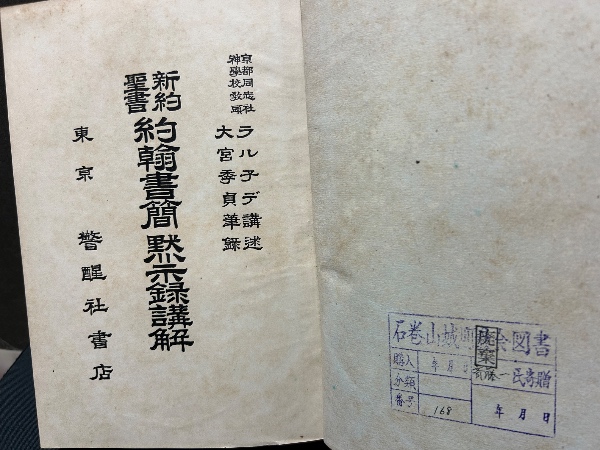 京都同志社
神學校教頭
ラルネデ講述
大宮季貞筆錄
新約
聖書
約翰書簡黙示録講解
東京 警醒社書店
石巻山城町 図書
廃棄
購入 年月
分類 斉藤一氏寄贈
番号 168 年月日